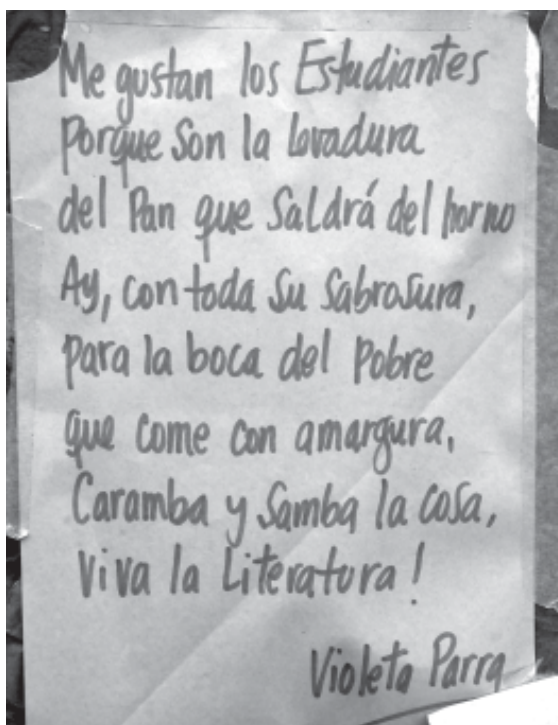 Me gustan los Estudiantes
Porque Son la levadura
del Pan que Saldrá del horno
Ay, con toda su Sabrosura,
Para la boca del Pobre
que come con amargura,
Caramba y Samba la cosa,
Viva la Literatura!
Violeta Parra